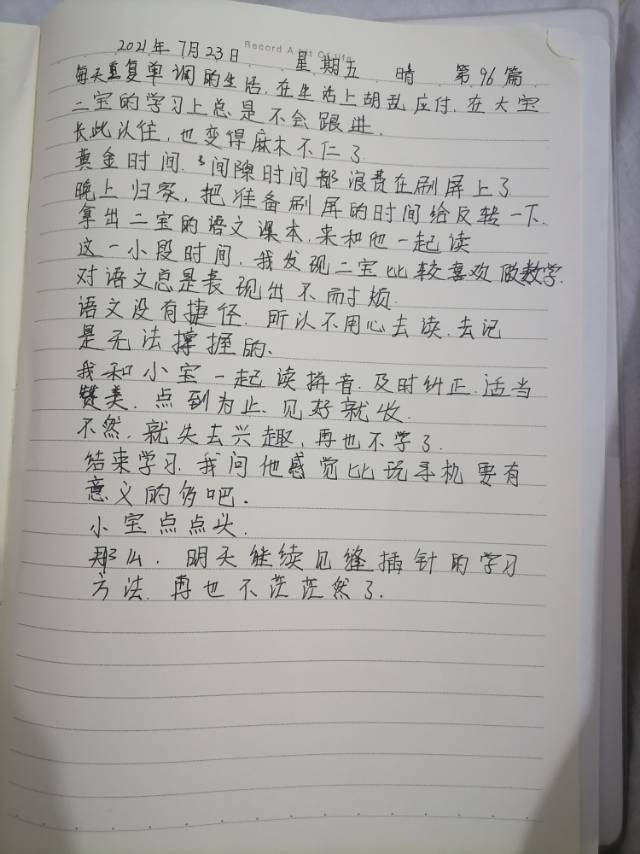 Record A Bit Of life
2021年7月23日 星期五 晴 第96篇
每天重复单调的生活,在生活上胡乱应付,在大宝
二宝的学习上总是不会跟进.
长此以往,也变得麻木不仁了
黄金时间、间隙时间都浪费在刷屏上了
晚上归家,把准备刷屏的时间给反转一下.
拿出二宝的语文课本,来和他一起读
这一小段时间,我发现二宝比较喜欢做数学.
对语文总是表现出不耐烦.
语文没有捷径.所以不用心去读.去记
是无法撑握的、
我和小宝一起读拼音.及时纠正.适当
赞美.点到为止.见好就收.
不然,就失去兴趣,再也不学了.
结束学习.我问他感觉比玩手机要有
意义的多吧.
小宝点点头.
那么.明天继续见缝插针的学习
方法.再也不茫茫然了.